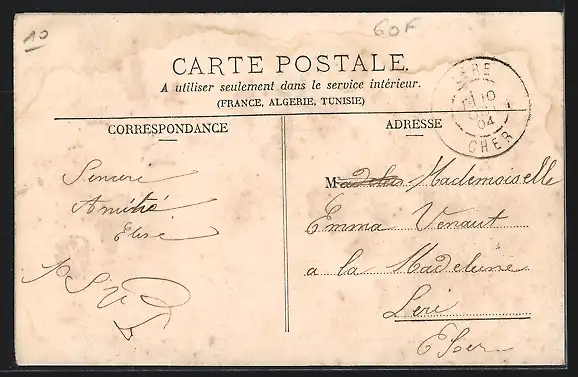 10
60F
CARTE POSTALE.
A utiliser seulement dans le service intérieur.
(FRANCE, ALGERIE, TUNISIE)
ERE
10
04
CHER
CORRESPONDANCE
ADRESSE
Amitié
Elise
M Mademoiselle
Emma Venaut
a la Madeleine
Leré
Cher